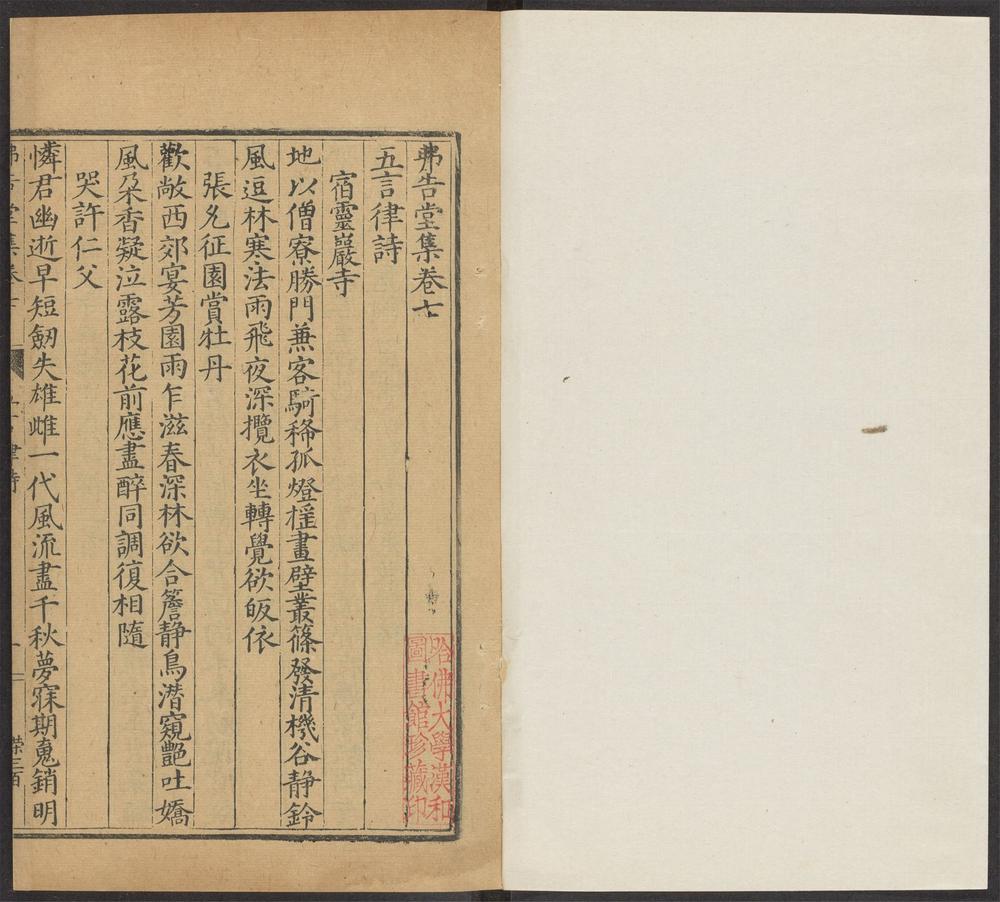 弗告堂集卷七
五言律詩
宿靈巖寺
地以僧寮勝門兼客騎稀孤燈摇畫壁叢篠發清機谷静鈴
風逗林寒法雨飛夜深攬衣坐轉覺欲皈依
張允征園賞牡丹
歡敞西郊宴芳園雨乍滋春深林欲合簷静鳥潜窺艷吐嬌
風朶香凝泣露枝花前應盡醉同調復相隨
哭許仁父
憐君幽逝早短劒失雄雌一代風流盡千秋夢寐期䰟銷明
弗告堂集卷七
五言律詩
一
榮三百
哈佛大學漢和
圖書館珍藏印